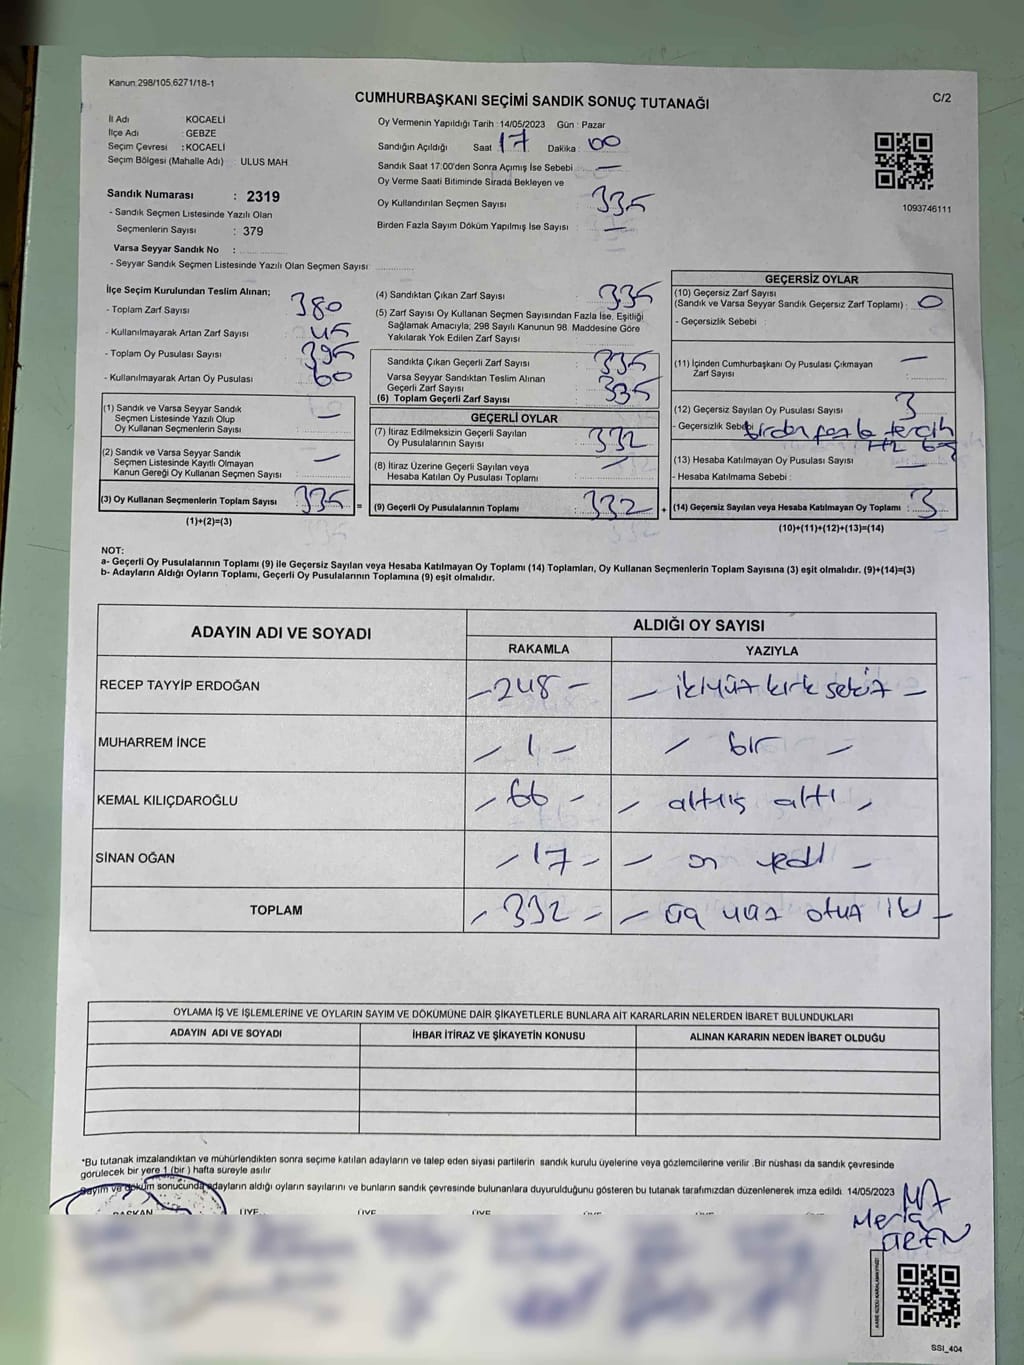 Kanun 298/105.6271/18-1
CUMHURBAŞKANI SEÇİMİ SANDIK SONUÇ TUTANAĞI
C/2
İl Adı KOCAELİ
İlçe Adı : GEBZE
Seçim Çevresi : KOCAELİ
Seçim Bölgesi (Mahalle Adı) : ULUS MAH
Sandık Numarası : 2319
- Sandık Seçmen Listesinde Yazılı Olan
Seçmenlerin Sayısı : 379
Varsa Seyyar Sandık No :
- Seyyar Sandık Seçmen Listesinde Yazılı Olan Seçmen Sayısı :
Oy Vermenin Yapıldığı Tarih : 14/05/2023 Gün : Pazar
Sandığın Açıldığı Saat : 17 Dakika : 00
Sandık Saat 17:00'den Sonra Açımış İse Sebebi : —
Oy Verme Saati Bitiminde Sırada Bekleyen ve
Oy Kullandırılan Seçmen Sayısı : 335
Birden Fazla Sayım Döküm Yapılmış İse Sayısı : —
1093746111
İlçe Seçim Kurulundan Teslim Alınan;
- Toplam Zarf Sayısı : 380
- Kullanılmayarak Artan Zarf Sayısı : 45
- Toplam Oy Pusulası Sayısı : 395
- Kullanılmayarak Artan Oy Pusulası : 60
(1) Sandık ve Varsa Seyyar Sandık
Seçmen Listesinde Yazılı Olup
Oy Kullanan Seçmenlerin Sayısı : —
(2) Sandık ve Varsa Seyyar Sandık
Seçmen Listesinde Kayıtlı Olmayan
Kanun Gereği Oy Kullanan Seçmen Sayısı : —
(3) Oy Kullanan Seçmenlerin Toplam Sayısı : 335 =
(1)+(2)=(3)
(4) Sandıktan Çıkan Zarf Sayısı : 335
(5) Zarf Sayısı Oy Kullanan Seçmen Sayısından Fazla İse, Eşitliği
Sağlamak Amacıyla; 298 Sayılı Kanunun 98. Maddesine Göre
Yakılarak Yok Edilen Zarf Sayısı :
Sandıkta Çıkan Geçerli Zarf Sayısı : 335
Varsa Seyyar Sandıktan Teslim Alınan
Geçerli Zarf Sayısı :
(6) Toplam Geçerli Zarf Sayısı : 335
GEÇERLİ OYLAR
(7) İtiraz Edilmeksizin Geçerli Sayılan
Oy Pusulalarının Sayısı : 332
(8) İtiraz Üzerine Geçerli Sayılan veya
Hesaba Katılan Oy Pusulası Toplamı : —
(9) Geçerli Oy Pusulalarının Toplamı : 332 +
GEÇERSİZ OYLAR
(10) Geçersiz Zarf Sayısı
(Sandık ve Varsa Seyyar Sandık Geçersiz Zarf Toplamı) : 0
- Geçersizlik Sebebi :
(11) İçinden Cumhurbaşkanı Oy Pusulası Çıkmayan
Zarf Sayısı : —
(12) Geçersiz Sayılan Oy Pusulası Sayısı : 3
- Geçersizlik Sebebi birden fazla tercih
(13) Hesaba Katılmayan Oy Pusulası Sayısı : —
- Hesaba Katılmama Sebebi :
(14) Geçersiz Sayılan veya Hesaba Katılmayan Oy Toplamı : 3
(10)+(11)+(12)+(13)=(14)
NOT:
a- Geçerli Oy Pusulalarının Toplamı (9) ile Geçersiz Sayılan veya Hesaba Katılmayan Oy Toplamı (14) Toplamları, Oy Kullanan Seçmenlerin Toplam Sayısına (3) eşit olmalıdır. (9)+(14)=(3)
b- Adayların Aldığı Oyların Toplamı, Geçerli Oy Pusulalarının Toplamına (9) eşit olmalıdır.
ADAYIN ADI VE SOYADI ALDIĞI OY SAYISI
RAKAMLA YAZIYLA
RECEP TAYYİP ERDOĞAN – 248 – – ikiyüz kırk sekiz –
MUHARREM İNCE – 1 – – bir –
KEMAL KILIÇDAROĞLU – 66 – – altmış altı –
SİNAN OĞAN – 17 – – on yedi –
TOPLAM – 332 – – üç yüz otuz iki –
OYLAMA İŞ VE İŞLEMLERİNE VE OYLARIN SAYIM VE DÖKÜMÜNE DAİR ŞİKAYETLERLE BUNLARA AİT KARARLARIN NELERDEN İBARET BULUNDUKLARI
ADAYIN ADI VE SOYADI İHBAR İTİRAZ VE ŞİKAYETİN KONUSU ALINAN KARARIN NEDEN İBARET OLDUĞU
*Bu tutanak imzalandıktan ve mühürlendikten sonra seçime katılan adayların ve talep eden siyasi partilerin sandık kurulu üyelerine veya gözlemcilerine verilir .Bir nüshası da sandık çevresinde
görülecek bir yere 1 (bir ) hafta süreyle asılır
Sayım ve döküm sonucunda adayların aldığı oyların sayılarını ve bunların sandık çevresinde bulunanlara duyurulduğunu gösteren bu tutanak tarafımızdan düzenlenerek imza edildi. 14/05/2023
BAŞKAN ÜYE ÜYE ÜYE ÜYE ÜYE ÜYE
SSI_404